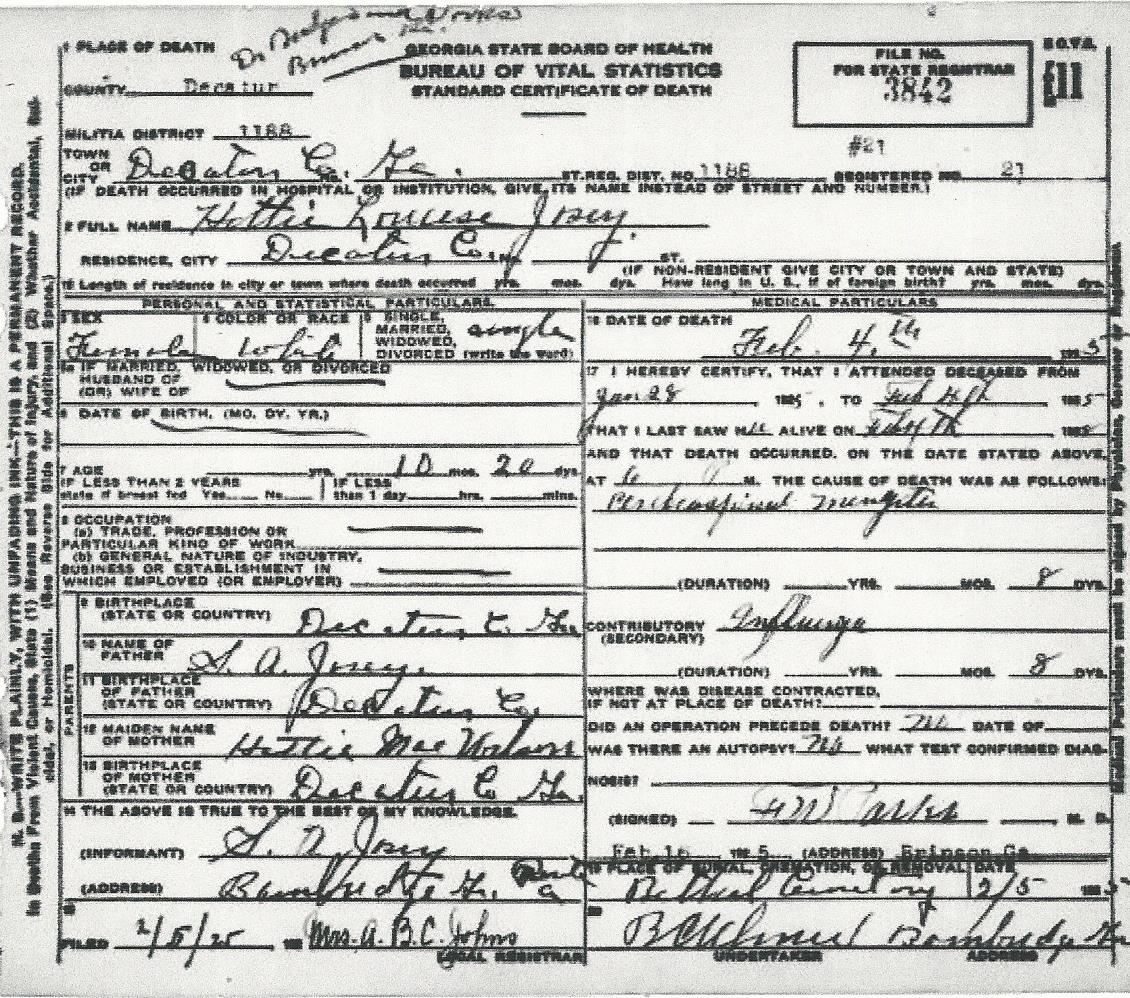 1 PLACE OF DEATH
COUNTY Decatur
GEORGIA STATE BOARD OF HEALTH
BUREAU OF VITAL STATISTICS
STANDARD CERTIFICATE OF DEATH
FILE NO.
FOR STATE REGISTRAR
3842
MILITIA DISTRICT 1188
#21
TOWN OR CITY Decatur Co. Ga. ST. REG. DIST. NO. 1188 REGISTERED NO. 21
(IF DEATH OCCURRED IN HOSPITAL OR INSTITUTION, GIVE ITS NAME INSTEAD OF STREET AND NUMBER.)
2 FULL NAME Hattie Louise Josey
RESIDENCE, CITY Decatur Co. ST.
(IF NON-RESIDENT GIVE CITY OR TOWN AND STATE)
Length of residence in city or town where death occurred yrs. mos. dys. How long in U. S., if of foreign birth? yrs. mos. dys.
PERSONAL AND STATISTICAL PARTICULARS
3 SEX Female
4 COLOR OR RACE White
5 SINGLE, MARRIED, WIDOWED, DIVORCED (write the word) single
5a IF MARRIED, WIDOWED, OR DIVORCED
HUSBAND OF
(OR) WIFE OF
6 DATE OF BIRTH, (MO. DY. YR.)
7 AGE yrs. 10 mos. 20 dys.
IF LESS THAN 2 YEARS state if breast fed Yes No
IF LESS than 1 day hrs. mins.
8 OCCUPATION
(a) TRADE, PROFESSION OR
PARTICULAR KIND OF WORK
(b) GENERAL NATURE OF INDUSTRY,
BUSINESS OR ESTABLISHMENT IN
WHICH EMPLOYED (OR EMPLOYER)
PARENTS
9 BIRTHPLACE
(STATE OR COUNTRY) Decatur C. Ga
10 NAME OF
FATHER S. A. Josey.
11 BIRTHPLACE
OF FATHER
(STATE OR COUNTRY) Decatur Co.
12 MAIDEN NAME
OF MOTHER Hattie Mae
13 BIRTHPLACE
OF MOTHER
(STATE OR COUNTRY) Decatur Co Ga.
14 THE ABOVE IS TRUE TO THE BEST OF MY KNOWLEDGE.
(INFORMANT) S. A. Josey
(ADDRESS) Bainbridge Ga.
FILED 2/5/25 Mrs. A. B. C. Johns
LOCAL REGISTRAR
MEDICAL PARTICULARS
16 DATE OF DEATH
Feb. 4th 1925
17 I HEREBY CERTIFY, THAT I ATTENDED DECEASED FROM
Jan 28 1925, TO Feb 4th 1925
THAT I LAST SAW ALIVE ON Feb 4th 1925
AND THAT DEATH OCCURRED, ON THE DATE STATED ABOVE,
AT 6 P M. THE CAUSE OF DEATH WAS AS FOLLOWS:
(DURATION) YRS. MOS. 8 DYS.
CONTRIBUTORY Influenza
(SECONDARY)
(DURATION) YRS. MOS. 8 DYS.
WHERE WAS DISEASE CONTRACTED,
IF NOT AT PLACE OF DEATH?
DID AN OPERATION PRECEDE DEATH? No DATE OF
WAS THERE AN AUTOPSY? No WHAT TEST CONFIRMED DIAG-
NOSIS?
(SIGNED) M. D.
Feb 16 1925 (ADDRESS) Brinson Ga
19 PLACE OF BURIAL, CREMATION, OR REMOVAL DATE
Bethel Cemetery 2/5
Bainbridge Ga
UNDERTAKER ADDRESS
N. B.—WRITE PLAINLY, WITH UNFADING INK—THIS IS A PERMANENT RECORD.
In Deaths From Violent Causes, State (1) Means and Nature of Injury, and (2) Whether Accidental, Sui-
cidal, or Homicidal. (See Reverse Side for Additional Space.)
Medical Particulars must be signed by Physician, Coroner or Registrar.